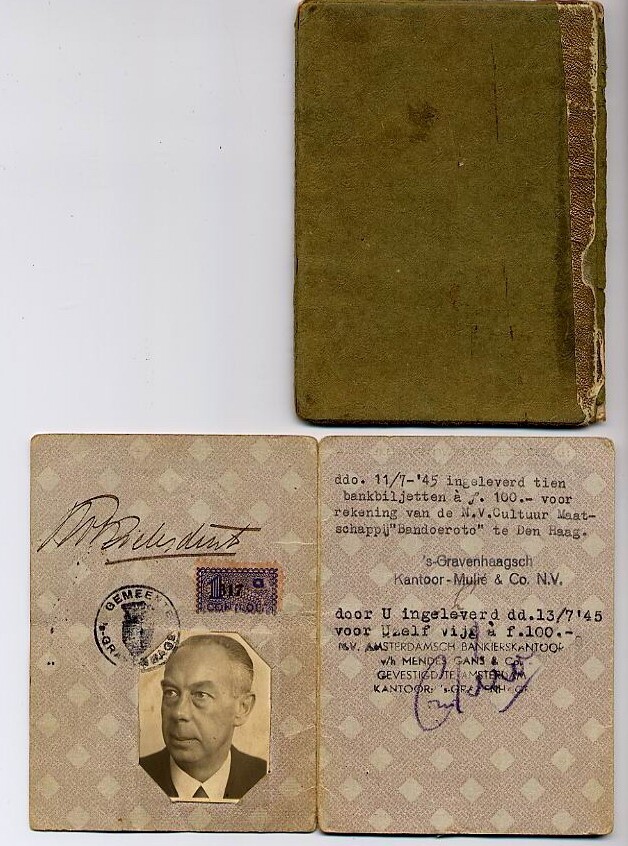 117 a
CONTROLE
GEMEENTE
's-GRAVENHAGE
ddo. 11/7-'45 ingeleverd tien
bankbiljetten à f. 100.- voor
rekening van de N.V.Cultuur Maat-
schappij"Bandoeroto" te Den Haag.
's-Gravenhaagsch
Kantoor-Mulié & Co. N.V.
door U ingeleverd dd.13/7'45
voor Uzelf vijf à f.100.-
N.V. AMSTERDAMSCH BANKIERSKANTOOR
v/h MENDES GANS & Co.
GEVESTIGD TE AMSTERDAM
KANTOOR: 's-GRAVENHAGE